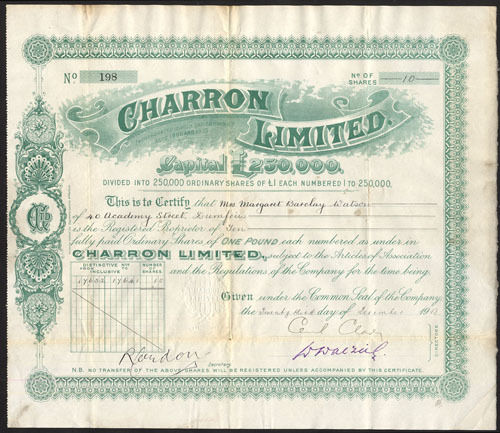 No 198
No OF SHARES 10
CHARRON
LIMITED.
Capital £250,000.
DIVIDED INTO 250,000 ORDINARY SHARES OF £1 EACH NUMBERED 1 TO 250,000.
This is to Certify that Mrs Margaret Barclay Watson
of 40 Academy Street, Dumfries
is the Registered Proprietor of Ten
fully paid Ordinary Shares of ONE POUND each numbered as under in
CHARRON LIMITED, subject to the Articles of Association
and the Regulations of the Company for the time being.
DISTINCTIVE Nos INCLUSIVE
NUMBER OF SHARES
10
Given under the Common Seal of the Company
the Twenty third day of December 191
DIRECTORS
Secretary
N.B. NO TRANSFER OF THE ABOVE SHARES WILL BE REGISTERED UNLESS ACCOMPANIED BY THIS CERTIFICATE.